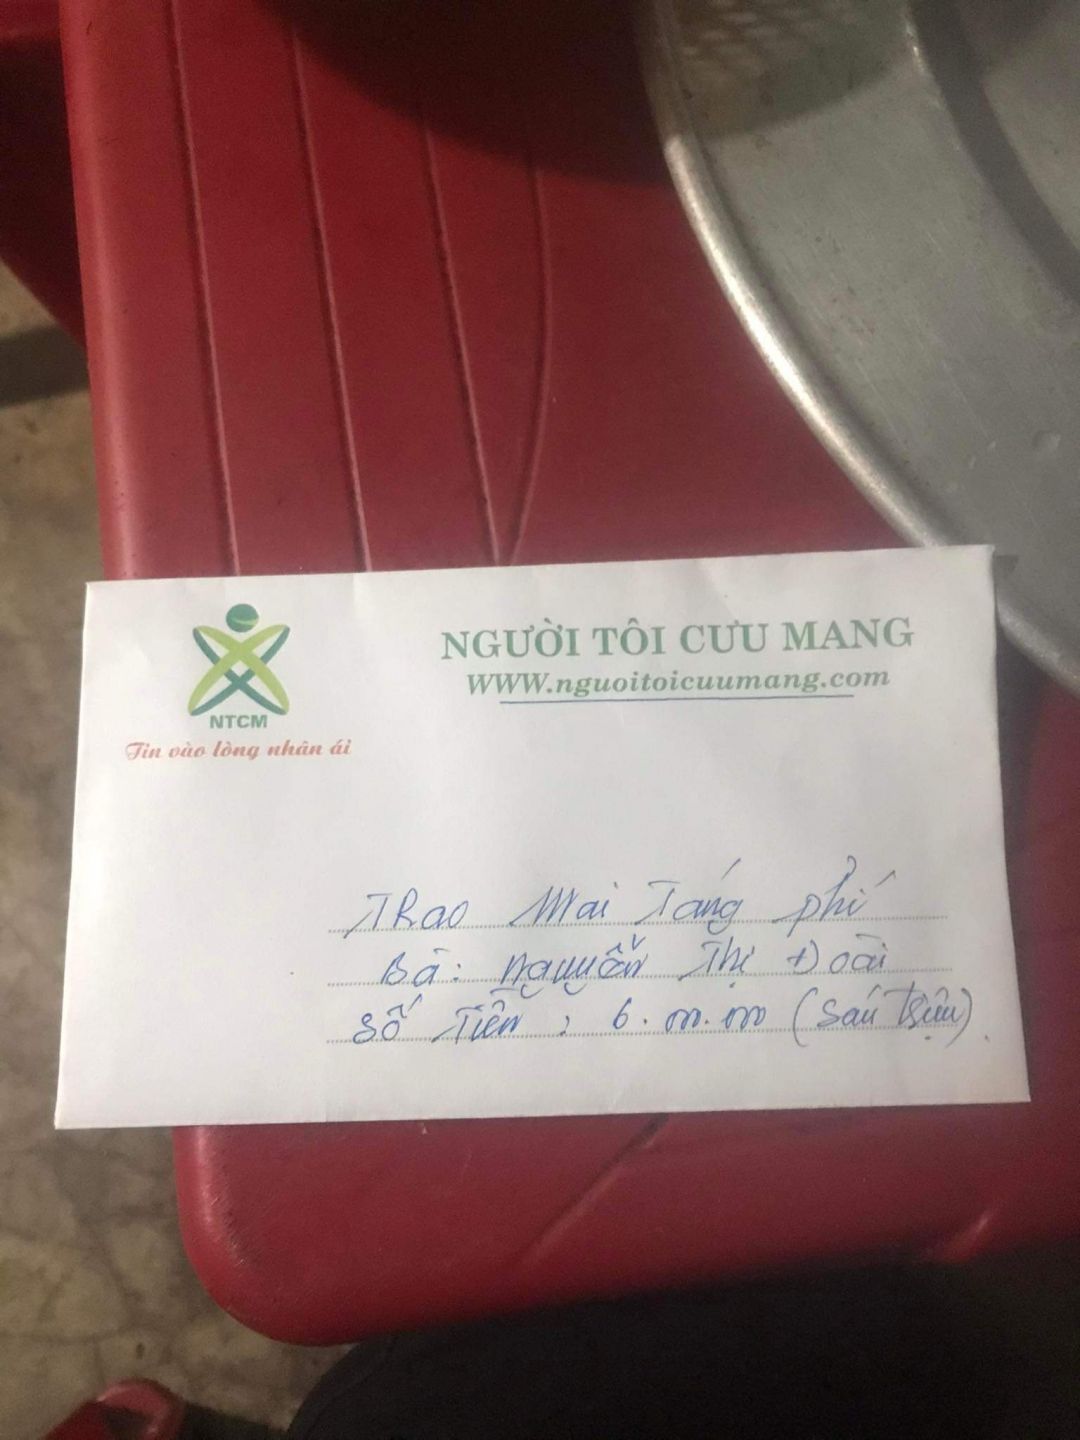 NGƯỜI TÔI CƯU MANG
WWW.nguoitoicuumang.com
NTCM
Tin vào lòng nhân ái
Trao Mai Táng phí
Bà: Nguyễn Thị Đoài
Số Tiền : 6.000.000 (Sáu triệu).